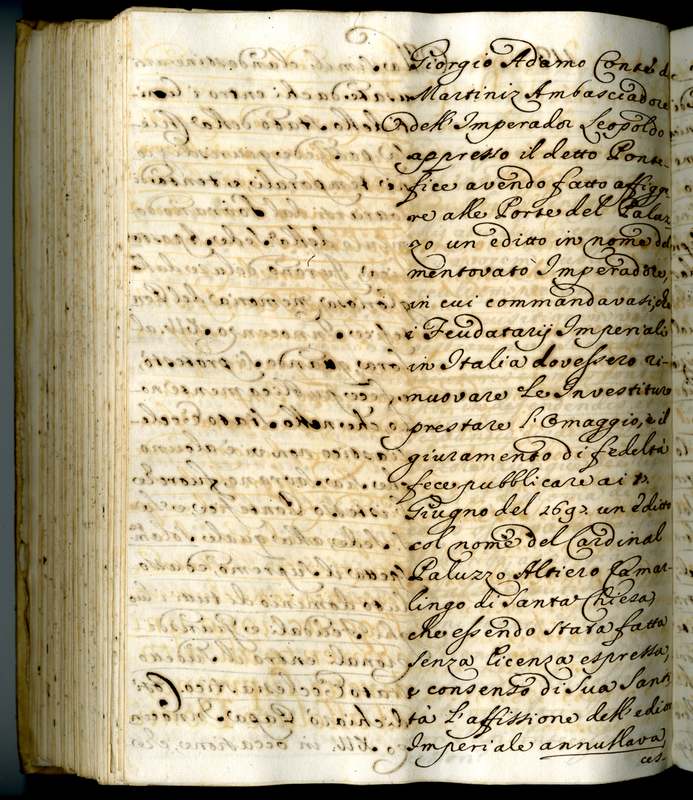 Giorgio Adamo Conte d
Martiniz Ambasciadore
dell' Imperador Leopoldo
appresso il detto Ponte-
fice avendo fatto affigge
re alle Porte del Palaz-
zo un editto in nome del
mentovato Imperadore,
in cui commandavasi, che
i Feudatarij Imperiali
in Italia dovessero ri-
nuovare le Investiture
prestare l'Omaggio, e il
giuramento di fedeltà
fece pubblicare ai
Giugno del 1697. un Editto
col nome del Cardinal
Paluzzo Altiero Camar-
lingo di Santa Chiesa,
che essendo stata fatta
senza licenza espressa,
e consenso di Sua Santi
tà l'affissione dell' editto
Imperiale annullava,
ces-